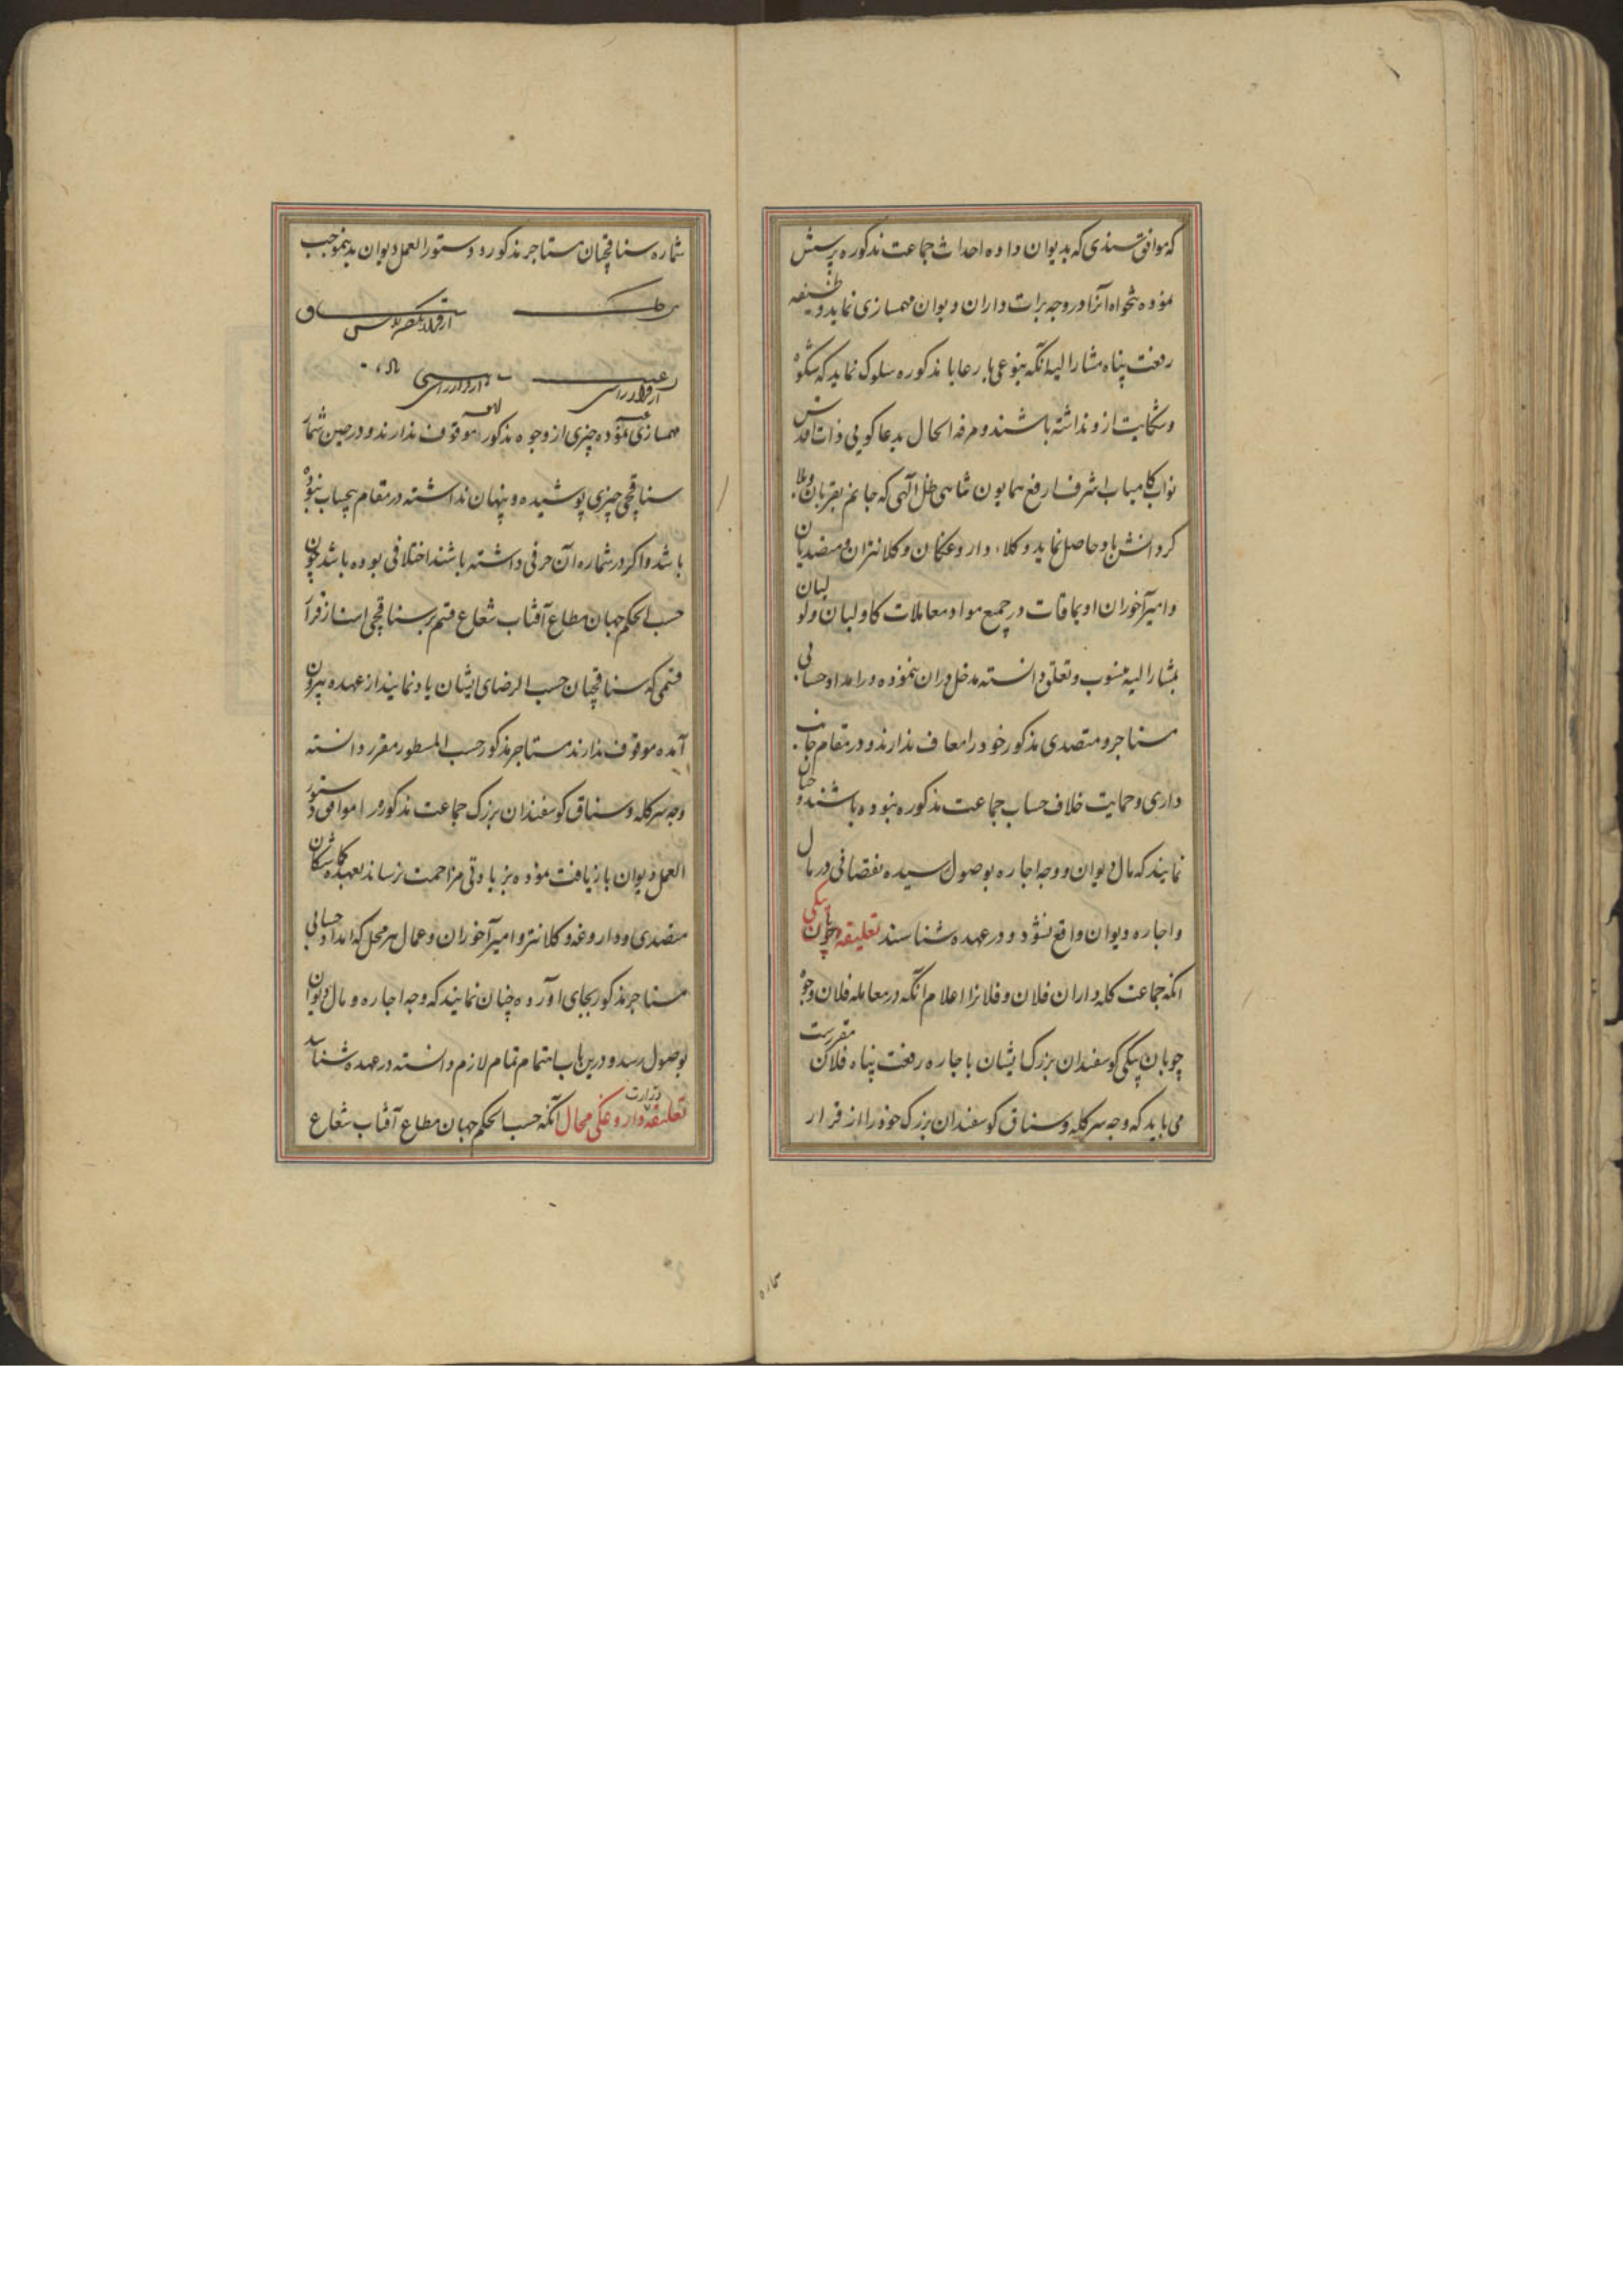 که موافق سندی که بدیوان داده احداث جماعت مذکوره پرسش
نموده تنخواه آنرا در وجه برات داران دیوان مهمسازی نماید وظیفه
رفعت پناه مشارالیه آنکه بنوعی با رعایا مذکوره سلوک نماید که شکوه
و شکایت ازو نداشته باشند و مرفه الحال بدعاکویی ذات اقدس
نواب کامیاب اشرف ارفع همایون شاهی ظل الهی که جانم بقربان
کردانش باد حاصل نماید وکلاء داروغکان و کلانتران و متصدیان
و امیرآخوران اویماقات در جمیع مواد معاملات کاولیان ولولیان
بمشارالیه منسوب و متعلق دانسته مدخل دران ننموده در امداد حسابی
مستاجر و متصدی مذکور خود را معاف ندارند و در مقام جانب
داری و حمایت خلاف حساب جماعت مذکوره نبوده باشند و چنان
نمایند که مال دیوان و وجه اجاره بوصول رسیده نقصانی در مال
و اجاره دیوان واقع نشود و در عهده شناسند تعلیقه چوپان بیکی
آنکه جماعت کله داران فلان و فلانرا اعلام آنکه در معامله فلان وجوه
چوپان بیکی کوسفندان بزرک ایشان باجاره رفعت پناه فلان مقررست
می باید که وجه سرکله و سناق کوسفندان بزرک خود را از قرار
شماره سناقچیان مستاجر مذکور و دستورالعمل دیوان بدینموجب
سرکله سناق
از قرار
مهمسازی نموده چیزی از وجوه مذکور موقوف ندارند و در حین شمار
سناقچی چیزی پوشیده و پنهان نداشته در مقام بیحساب نبوده
باشد و اکر در شماره آن حرفی داشته باشند اختلافی بوده باشد چون
حسب الحکم جهان مطاع آفتاب شعاع قسم بر سناقچی است از قرار
قسمی که سناقچیان حسب الرضای ایشان یاد نمایند از عهده بیرون
آمده موقوف ندارند مستاجر مذکور حسب المسطور مقرر دانسته
وجه سرکله و سناق کوسفندان بزرک جماعت مذکور را موافق دستور
العمل دیوان بازیافت نموده بزیادتی مزاحمت نرساند بعهده کماشتکان
متصدی و داروغه و کلانتر و امیرآخوران و عمال هر محل که امداد حسابی
مستاجر مذکور بجای آورده چنان نمایند که وجه اجاره و مال دیوان
بوصول رسد و درین باب اهتمام تمام لازم دانسته در عهده شناسند
تعلیقه وزارت و داروغکی محال آنکه حسب الحکم جهان مطاع آفتاب شعاع
شماره